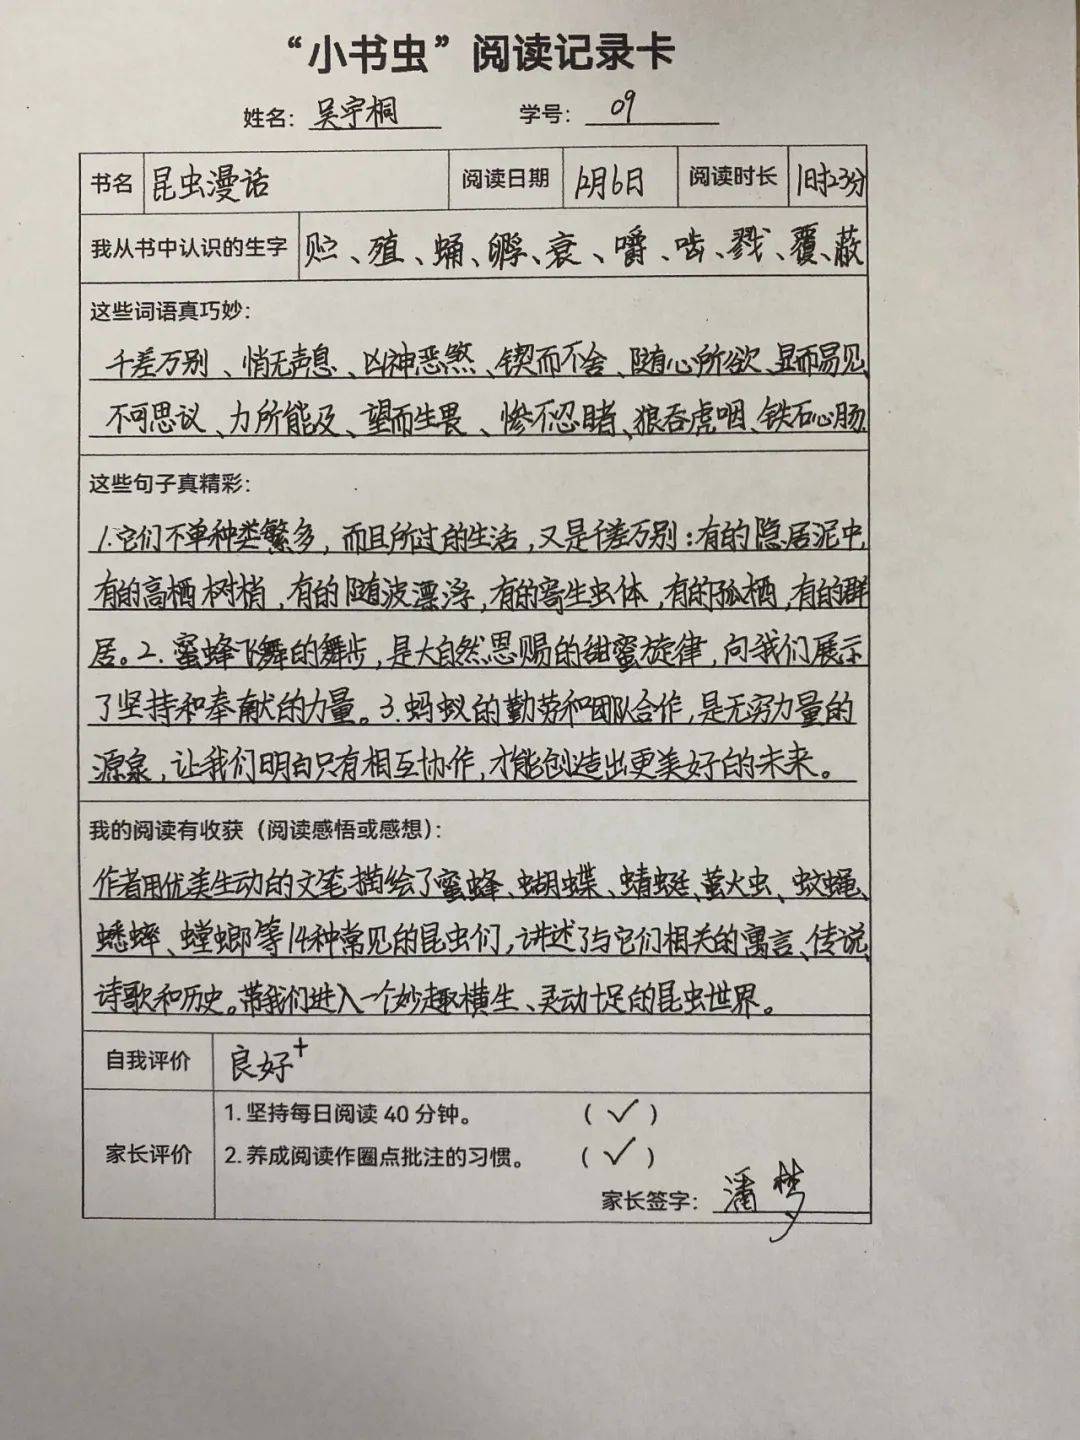 “小书虫”阅读记录卡
姓名：吴宇桐 学号：09
书名 昆虫漫话 阅读日期 12月6日 阅读时长 1时23分
我从书中认识的生字 贮、殖、蛹、孵、衰、嚼、啮、戮、覆、蔽
这些词语真巧妙：
千差万别、悄无声息、凶神恶煞、锲而不舍、随心所欲、显而易见
不可思议、力所能及、望而生畏、惨不忍睹、狼吞虎咽、铁石心肠
这些句子真精彩：
1.它们不单种类繁多，而且所过的生活，又是千差万别：有的隐居泥中，
有的高栖树梢，有的随波漂浮，有的寄生虫体，有的孤栖，有的群
居。2.蜜蜂飞舞的舞步，是大自然恩赐的甜蜜旋律，向我们展示
了坚持和奉献的力量。3.蚂蚁的勤劳和团队合作，是无穷力量的
源泉，让我们明白只有相互协作，才能创造出更美好的未来。
我的阅读有收获（阅读感悟或感想）：
作者用优美生动的文笔描绘了蜜蜂、蝴蝶、蜻蜓、萤火虫、蚊蝇、
蟋蟀、螳螂等14种常见的昆虫们，讲述了与它们相关的寓言、传说、
诗歌和历史。带我们进入一个妙趣横生、灵动十足的昆虫世界。
自我评价 良好+
家长评价
1. 坚持每日阅读 40 分钟。 （✓）
2. 养成阅读作圈点批注的习惯。 （✓）
家长签字：潘梦